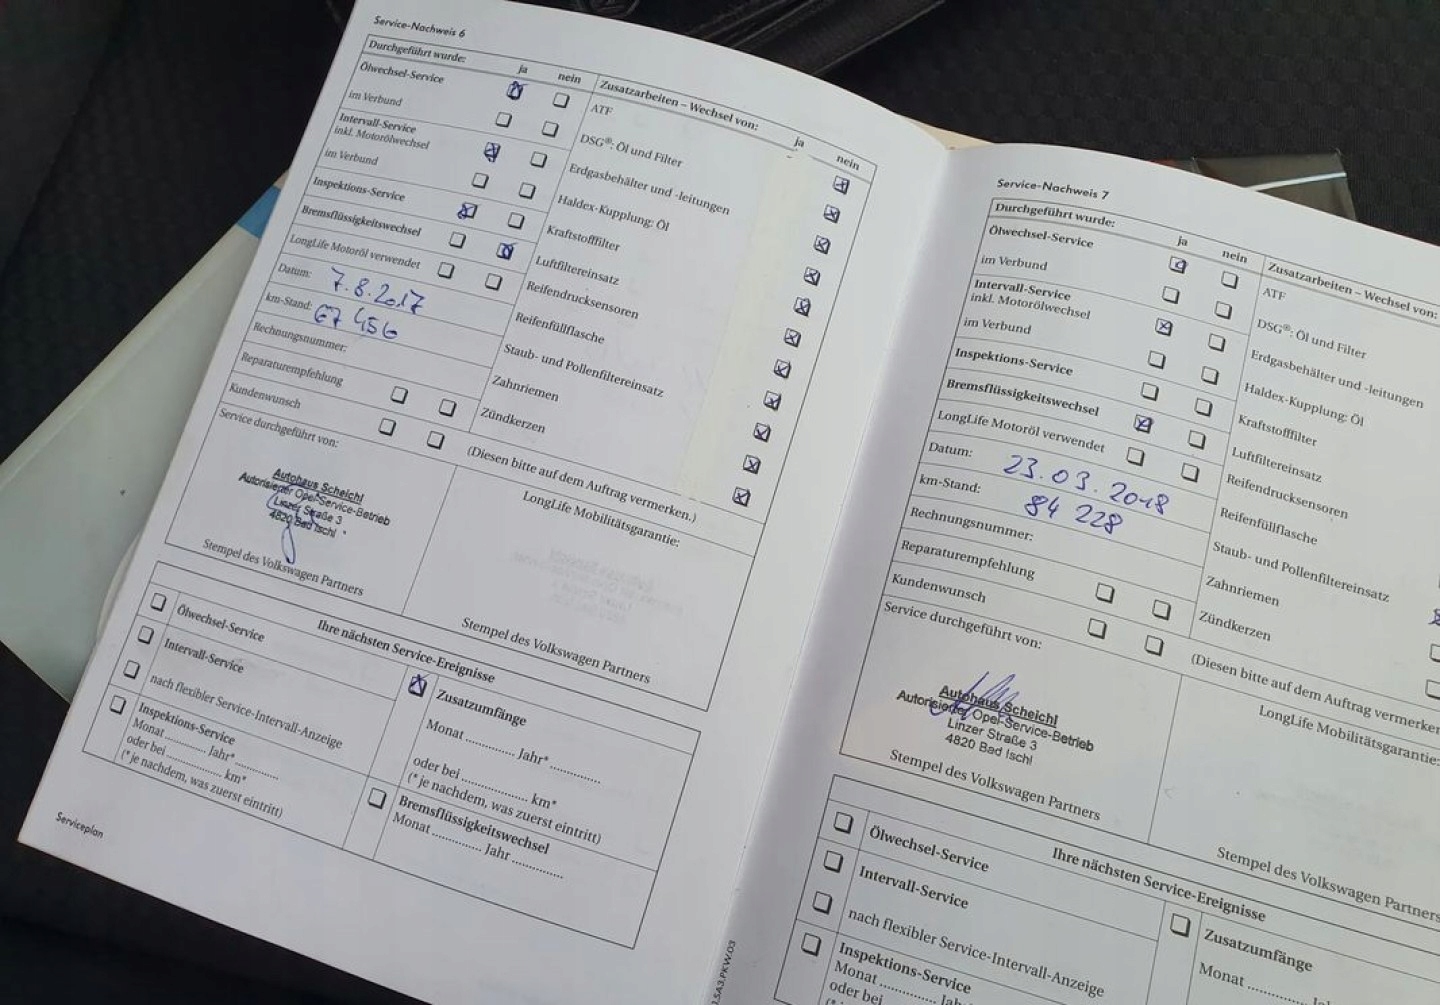 Service-Nachweis 6
Durchgeführt wurde: ja nein
Ölwechsel-Service
im Verbund
Intervall-Service
inkl. Motorölwechsel
im Verbund
Inspektions-Service
Bremsflüssigkeitswechsel
LongLife Motoröl verwendet
Datum: 7.8.2017
km-Stand: 67 456
Rechnungsnummer:
Reparaturempfehlung
Kundenwunsch
Service durchgeführt von:
Autohaus Scheichl
Autorisierter Opel-Service-Betrieb
Linzer Straße 3
4820 Bad Ischl
Stempel des Volkswagen Partners
Zusatzarbeiten – Wechsel von: ja nein
ATF
DSG®: Öl und Filter
Erdgasbehälter und -leitungen
Haldex-Kupplung: Öl
Kraftstofffilter
Luftfiltereinsatz
Reifendrucksensoren
Reifenfüllflasche
Staub- und Pollenfiltereinsatz
Zahnriemen
Zündkerzen
(Diesen bitte auf dem Auftrag vermerken.)
LongLife Mobilitätsgarantie:
Stempel des Volkswagen Partners
Ihre nächsten Service-Ereignisse
Ölwechsel-Service
Intervall-Service
nach flexibler Service-Intervall-Anzeige
Inspektions-Service
Monat ............ Jahr* ............
oder bei ............ km*
(*je nachdem, was zuerst eintritt)
Zusatzumfänge
Monat ............ Jahr* ............
oder bei ............ km*
(*je nachdem, was zuerst eintritt)
Bremsflüssigkeitswechsel
Monat ............ Jahr ............
Serviceplan
Service-Nachweis 7
Durchgeführt wurde: ja nein
Ölwechsel-Service
im Verbund
Intervall-Service
inkl. Motorölwechsel
im Verbund
Inspektions-Service
Bremsflüssigkeitswechsel
LongLife Motoröl verwendet
Datum: 23.03.2018
km-Stand: 84 228
Rechnungsnummer:
Reparaturempfehlung
Kundenwunsch
Service durchgeführt von:
Autohaus Scheichl
Autorisierter Opel-Service-Betrieb
Linzer Straße 3
4820 Bad Ischl
Stempel des Volkswagen Partners
Zusatzarbeiten – Wechsel von:
ATF
DSG®: Öl und Filter
Erdgasbehälter und -leitungen
Haldex-Kupplung: Öl
Kraftstofffilter
Luftfiltereinsatz
Reifendrucksensoren
Reifenfüllflasche
Staub- und Pollenfiltereinsatz
Zahnriemen
Zündkerzen
(Diesen bitte auf dem Auftrag
LongLife Mobilitätsgarantie:
Stempel des Volkswagen Partners
Ihre nächsten Service-Ereignisse
Ölwechsel-Service
Intervall-Service
nach flexibler Service-Intervall-Anzeige
Inspektions-Service
Monat ............ Jahr* ............
oder bei ............
Zusatzumfänge
Monat ............